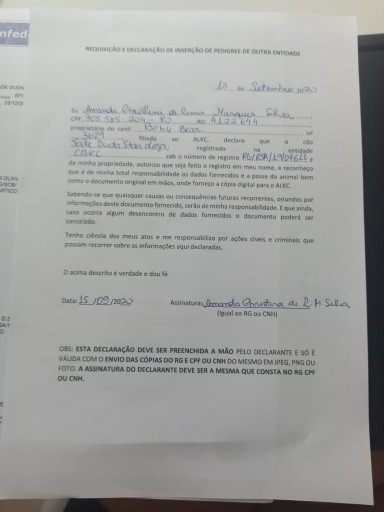 nfed
REQUISIÇÃO E DECLARAÇÃO DE INSERÇÃO DE PEDIGREE DE OUTRA ENTIDADE
15 de Setembro 2020
Eu Amanda Christina de Marques Silva
CPF RG 4122644
proprietária do canil Bear nº
3689 filiado ao ALKC, declaro que o cão
Jade Duda Standogs, registrado na entidade
CBKC sob o número de registro e
de minha propriedade, autorizo que seja feito o registro em meu nome, e reconheço
que é de minha total responsabilidade os dados fornecidos e a posse do animal bem
como o documento original em mãos, onde forneço a cópia digital para o ALKC.
Sabendo-se que quaisquer causas ou consequências futuras recorrentes, oriundos por
informações deste documento fornecido, serão de minha responsabilidade. E que ainda,
caso ocorra algum desencontro de dados fornecidos o documento poderá ser
cancelado.
Tenho ciência dos meus atos e me responsabilizo por ações cíveis e criminais que
possam recorrer sobre as informações aqui declaradas.
O acima descrito é verdade e dou fé
Data: 15/09/2020 Assinatura: Amanda Christina de R. M Silva
(Igual ao RG ou CNH)
OBS: ESTA DECLARAÇÃO DEVE SER PREENCHIDA A MÃO PELO DECLARANTE E SÓ É
VÁLIDA COM O ENVIO DAS CÓPIAS DO RG E CPF OU CNH DO MESMO EM JPEG, PNG OU
FOTO. A ASSINATURA DO DECLARANTE DEVE SER A MESMA QUE CONSTA NO RG CPF
OU CNH.